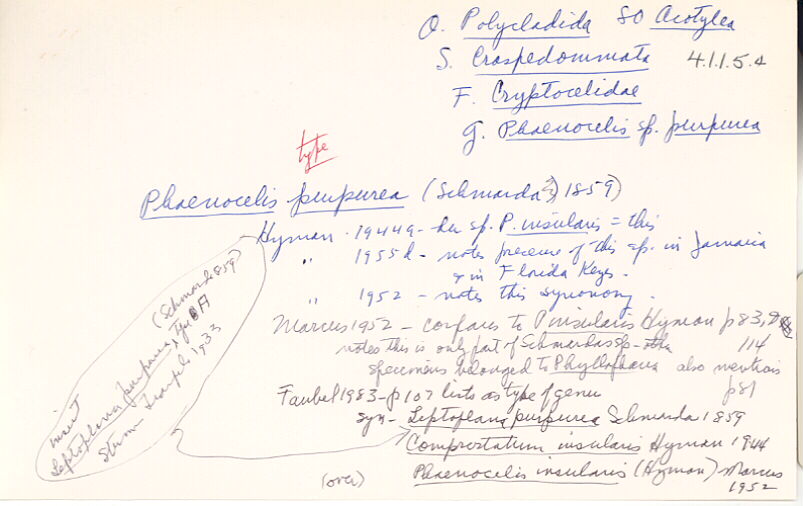 O. Polycladida SO Acotylea
S. Craspedommata 4.1.1.5.4
F. Cryptocelidae
G. Phaenocelis sp. purpurea
type
Phaenocelis purpurea (Schmarda, 1859)
Hyman 1944a - her sp. P. insularis = this
" 1955d - notes presence of this sp. in Jamaica
& in Florida Keys.
" 1952 - notes this synonomy.
Marcus 1952 - compares to P insularis Hyman p83,
notes this is only part of Schmardas sp - other 114
specimens belonged to Phylloplana also mentions
p81
Faubel 1983 - p107 lists as type of genu
syn - Leptoplana purpurea Schmarda 1859
Comprostatum insularis Hyman 1944
Phaenocelis insularis (Hyman) Marcus
1952
(over)
insert
Leptoplana purpurea, type A (Schmarda 1859)
Stummer-Traunfels 1933